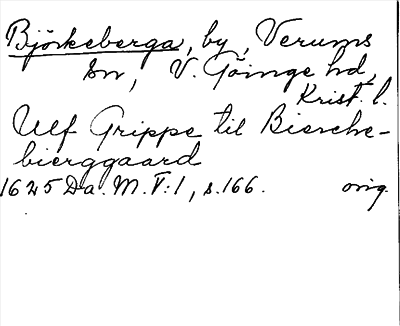 Björkeberga, by, Verums
sn, V. Göinge hd,
Krist. l.
Ulf Grippe til Biesche-
bierggaard
1625 Da. M. V:1, s. 166. orig.